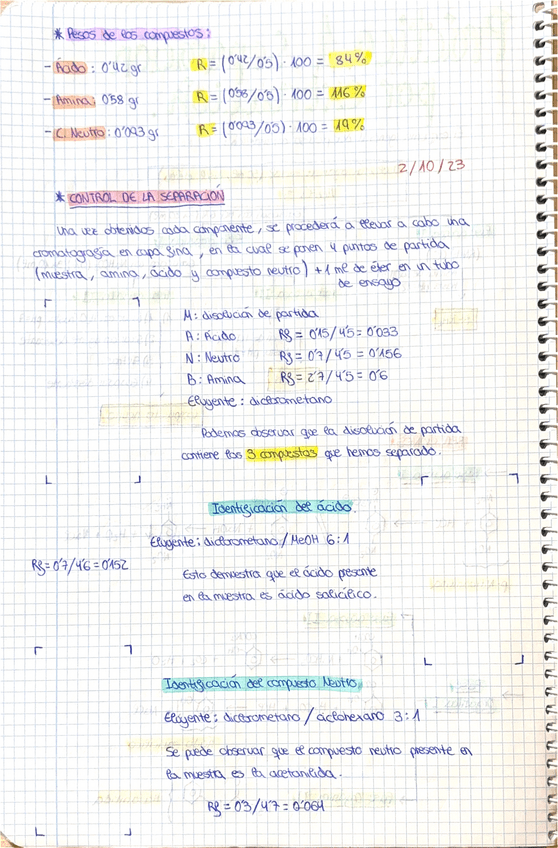 * Pesos de los compuestos:
- Ácido: 0'42 gr R = (0'42/0'5) · 100 = 84%
- Amina: 0'58 gr R = (0'58/0'5) · 100 = 116%
- C. Neutro: 0'093 gr R = (0'093/0'5) · 100 = 19%
2/10/23
* CONTROL DE LA SEPARACIÓN
Una vez obtenidos cada componente, se procederá a llevar a cabo una
cromatografía en capa fina, en la cual se ponen 4 puntos de partida
(muestra, amina, ácido y compuesto neutro) + 1 ml de éter en un tubo
de ensayo
M: disolución de partida
A: Ácido Rf = 0'15/4'5 = 0'033
N: Neutro Rf = 0'7/4'5 = 0'156
B: Amina Rf = 2'7/4'5 = 0'6
Eluyente: diclorometano
Podemos observar que la disolución de partida
contiene los 3 compuestos que hemos separado.
Identificación del ácido.
Eluyente: diclorometano / MeOH 6:1
Rf = 0'7/4'6 = 0'152
Esto demuestra que el ácido presente
en la muestra es ácido salicílico.
Identificación del compuesto Neutro
Eluyente: diclorometano / ciclohexano 3:1
Se puede observar que el compuesto neutro presente en
la muestra es la acetanilida.
Rf = 0'3/4'7 = 0'064